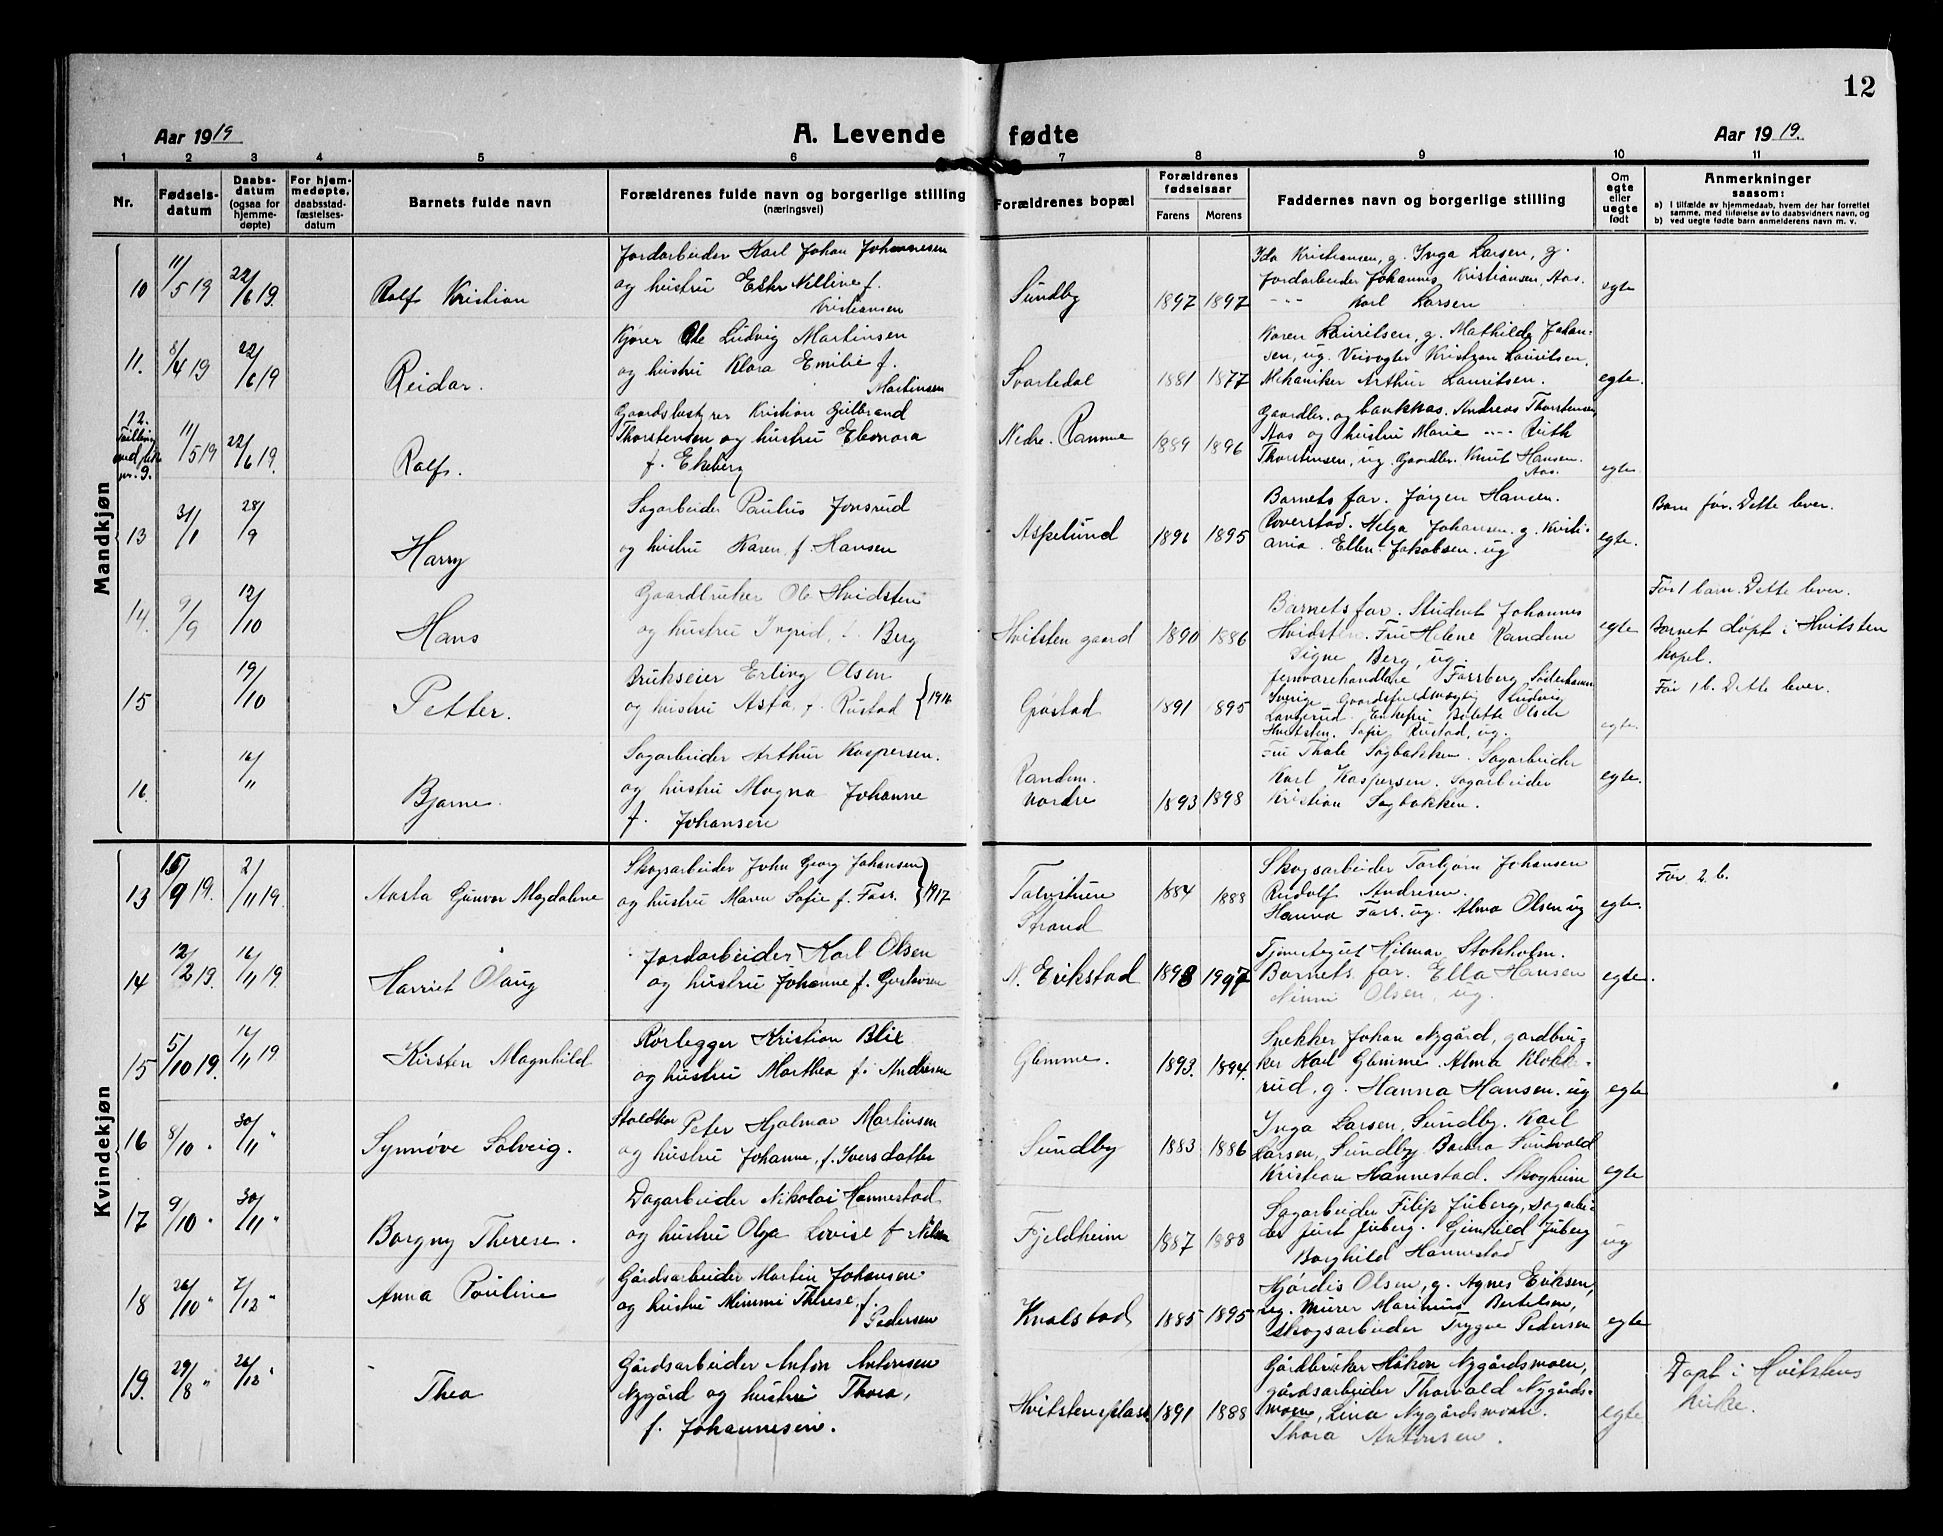 12
Aar 1919
A. Levende
fødte
Aar 1919.
1 2 3 4 5 6 7 8 9 10 11
Nr.
Fødsels-
datum
Daabs-
datum
(ogsaa for
hjemme-
døpte)
For hjem-
medøpte,
daabsstad-
fæstelses-
datum
Barnets fulde navn
Forældrenes fulde navn og borgerlige stilling
(næringsvei)
Forældrenes bopæl
Forældrenes
fødselsaar
Farens Morens
Faddernes navn og borgerlige stilling
Om
egte
eller
uegte
født
Anmerkninger
saasom:
a) I tilfælde av hjemmedaab, hvem der har forrettet
samme, med tilføielse av to daabsvidners navn, og
b) ved uegte fødte barn anmelderens navn m. v.
Mandkjøn
10 11/5 19 22/6 19. Rolf Kristian
Jordarbeider Karl Johan Johannesen
og hustru Ester Nilline f.
Kristiansen
Sundby 1897 1897
Ida Kristiansen, g. Inga Larsen, g.
Jordarbeider Johannes Kristiansen, Aas.
Karl Larsen
egte
11. 8/4 19 22/6 19 Reidar.
Kjører Ole Ludvig Martinsen
og hustru Klara Emilie f.
Martinsen
Svartedal 1881 1877
Karen Lauritsen, g. Mathilde Johan-
sen, ug. Veivogter Kristian Lauritsen,
Mekaniker Arthur Lauritsen.
egte.
12.
Tvilling
med pike
nr. 9.
11/5 19 22/6 19. Rolf.
Gaardsbestyrer Kristian Gulbrand
Thorstensen og hustru Eleonora
f. Ekeberg
Nedre. Ramme 1889 1896
Gaardbr. og bankkas. Andreas Thorstensen,
Aas og hustru Marie Ruth
Thorstensen, ug. Gaardbr. Knut Hansen.
Aas.
egte
13 31/1 28/9 Harry
Sagarbeider Paulus Jonsrud
og hustru Karen f. Hansen
Aspelund 1896 1895
Barnets far. Jørgen Hansen.
Roverstad. Helga Johansen. g. Kristi-
ania. Ellen Jakobsen. ug
egte.
Barn før. Dette lever.
14. 9/9 12/10 Hans
Gaardbruker Ole Hvidsten
og hustru Ingrid, Berg
Hvitsten gaard 1890 1886
Barnets far. Student Johannes
Hvidsten. Fru Helene Randem
Signe Berg, ug.
egte
Før 1 barn. Dette lever.
Barnet døpt i Hvitsten
kapel.
15 19/10 Petter.
Brukseier Erling Olsen
og hustru Asta f. Rustad {1916
Grøstad 1891 1895
Jernvarehandlare Forsberg Söderhamn
Sverige. Gaardsfuldmægtig Ludvig
Langerud. Enkefru Bolette Olsen
Hvitsten. Sofie Rustad, ug.
egte.
Før 1 b. Dette lever.
16 16/11 " Bjarne.
Sagarbeider Arthur Kaspersen.
og hustru Magna Johanne
f. Johansen
Randem.
nordre 1893 1898
Fru Thale Sagbakken. Sagarbeider
Karl Kaspersen. Sagarbeider
Kristian Sagbakken.
egte.
Kvindekjøn
13 15/9 19. 2/11 19. Aasta Gunvor Magdalene
Skogsarbeider John Georg Johansen
og hustru Maren Sofie f. Foss. {1917
Strand 1884 1888
Skogsarbeider Torbjørn Johansen
Rudolf Andresen.
Hanna Foss. ug. Alma Olsen ug
egte.
Før 2 b.
14 12/2 19. 16/11 19 Harriet Olaug
Jordarbeider Karl Olsen
og hustru Johanne f. Gustavsen
N. Erikstad 1898 1997
Tjenestegut Hilmar Stokholm.
Barnets far. Ella Hansen
Minni Olsen, ug.
egte.
15 5/10 19. 16/11 19 Kirsten Magnhild
Rørlegger Kristian Blix
og hustru Marthea f. Andresen
Glemme. 1893. 1894.
Snekker Johan Nygård, gardbru-
ker Karl Glemme. Alma Klokke-
rud, g. Hanna Hansen. ug
egte
16 8/10 " 30/11 " Synnøve Solveig.
Staldkar Peter Hjalmar Martinsen
og hustru Johanne, f. Iversdatter
Sundby 1883 1886
Inga Larsen, Sundby. Karl
Larsen, Sundby. Borna Sundvold
Kristian Hannestad. Skogheim
egte
17 9/10 " 30/11 " Borgny Therese.
Dagarbeider Nikolai Hannestad
og hustru Olga Lovise f. Nilsen
Fjeldheim 1887 1888
Sagarbeider Filip Juberg, Sagarbei-
der Just Juberg. Gunhild Juberg
Borghild Hannestad
ug
18 26/10 " 7/12 " Anna Pauline
Gårdsarbeider Martin Johansen
og hustru Mimmi Therese, f.
Pedersen
Knalstad 1885 1895
Hjördis Olsen, g. Agnes Eriksen,
ug. Murer Marinius Bertelsen,
Skogsarbeider Trygve Pedersen
egte
19. 29/8 " 26/12 " Thea
Gårdsarbeider Anton Antonsen
Nygård og hustru Thora,
f. Johannesen.
Hvitstensplass 1891 1888
Gårdbruker Håkon Nygårdsmoen,
gårdsarbeider Thorvald Nygårds-
moen, Lina Nygårdsmoen.
Thora Antonsen.
egte
Døpt i Hvitstens
kirke.